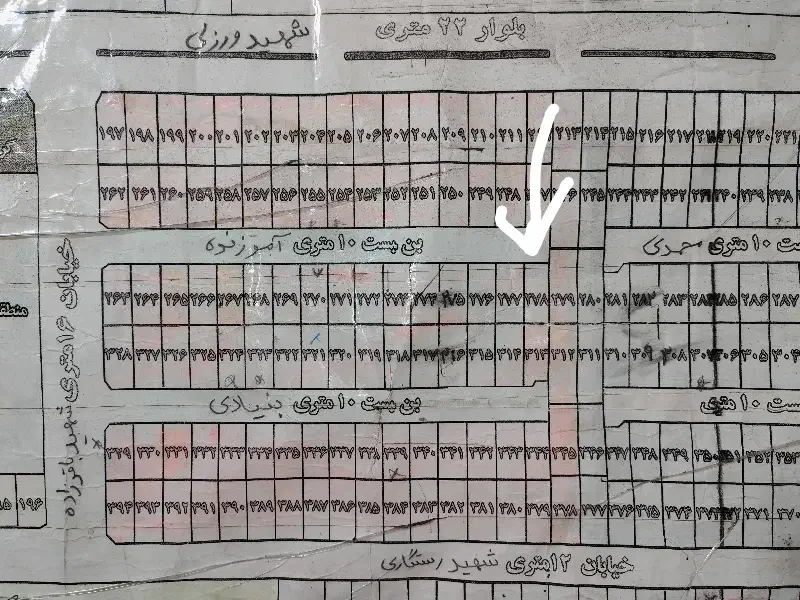 بلوار ۲۲ متری شهید ورزلی
۱۹۷ ۱۹۸ ۱۹۹ ۲۰۰ ۲۰۱ ۲۰۲ ۲۰۳ ۲۰۴ ۲۰۵ ۲۰۶ ۲۰۷ ۲۰۸ ۲۰۹ ۲۱۰ ۲۱۱ ۲۱۳ ۲۱۴ ۲۱۵ ۲۱۶ ۲۱۷ ۲۱۹ ۲۲۰ ۲۲۱
۲۶۲ ۲۶۱ ۲۶۰ ۲۵۹ ۲۵۸ ۲۵۷ ۲۵۶ ۲۵۵ ۲۵۴ ۲۵۳ ۲۵۲ ۲۵۱ ۲۵۰ ۲۴۹ ۲۴۸ ۲۴۵ ۲۴۴ ۲۴۳ ۲۴۲ ۲۳۹ ۲۳۸
بن بست ۱۰ متری آموزنده
۱۰ متری صمدی
۲۶۳ ۲۶۴ ۲۶۵ ۲۶۶ ۲۶۷ ۲۶۸ ۲۶۹ ۲۷۰ ۲۷۱ ۲۷۲ ۲۷۳ ۲۷۴ ۲۷۵ ۲۷۶ ۲۷۷ ۲۷۸ ۲۷۹ ۲۸۰ ۲۸۱ ۲۸۲ ۲۸۳ ۲۸۴ ۲۸۵ ۲۸۶ ۲۸۷
۳۲۸ ۳۲۷ ۳۲۶ ۳۲۵ ۳۲۴ ۳۲۳ ۳۲۲ ۳۲۱ ۳۲۰ ۳۱۹ ۳۱۸ ۳۱۷ ۳۱۶ ۳۱۵ ۳۱۴ ۳۱۳ ۳۱۲ ۳۱۱ ۳۱۰ ۳۰۹ ۳۰۸ ۳۰۷ ۳۰۶ ۳۰۵ ۳۰۴
بن بست ۱۰ متری بنیادی
۱۰ متری
۳۲۹ ۳۳۰ ۳۳۱ ۳۳۲ ۳۳۳ ۳۳۴ ۳۳۵ ۳۳۶ ۳۳۷ ۳۳۸ ۳۳۹ ۳۴۰ ۳۴۱ ۳۴۲ ۳۴۳ ۳۴۴ ۳۴۵ ۳۴۶ ۳۴۷ ۳۴۸ ۳۴۹ ۳۵۰ ۳۵۱ ۳۵۲ ۳۵۳
۳۹۴ ۳۹۳ ۳۹۲ ۳۹۱ ۳۹۰ ۳۸۹ ۳۸۸ ۳۸۷ ۳۸۶ ۳۸۵ ۳۸۴ ۳۸۳ ۳۸۲ ۳۸۱ ۳۸۰ ۳۷۹ ۳۷۸ ۳۷۷ ۳۷۶ ۳۷۵ ۳۷۴ ۳۷۳ ۳۷۲ ۳۷۱ ۳۷۰
خیابان ۱۲ متری شهید رستگاری
۱۹۶